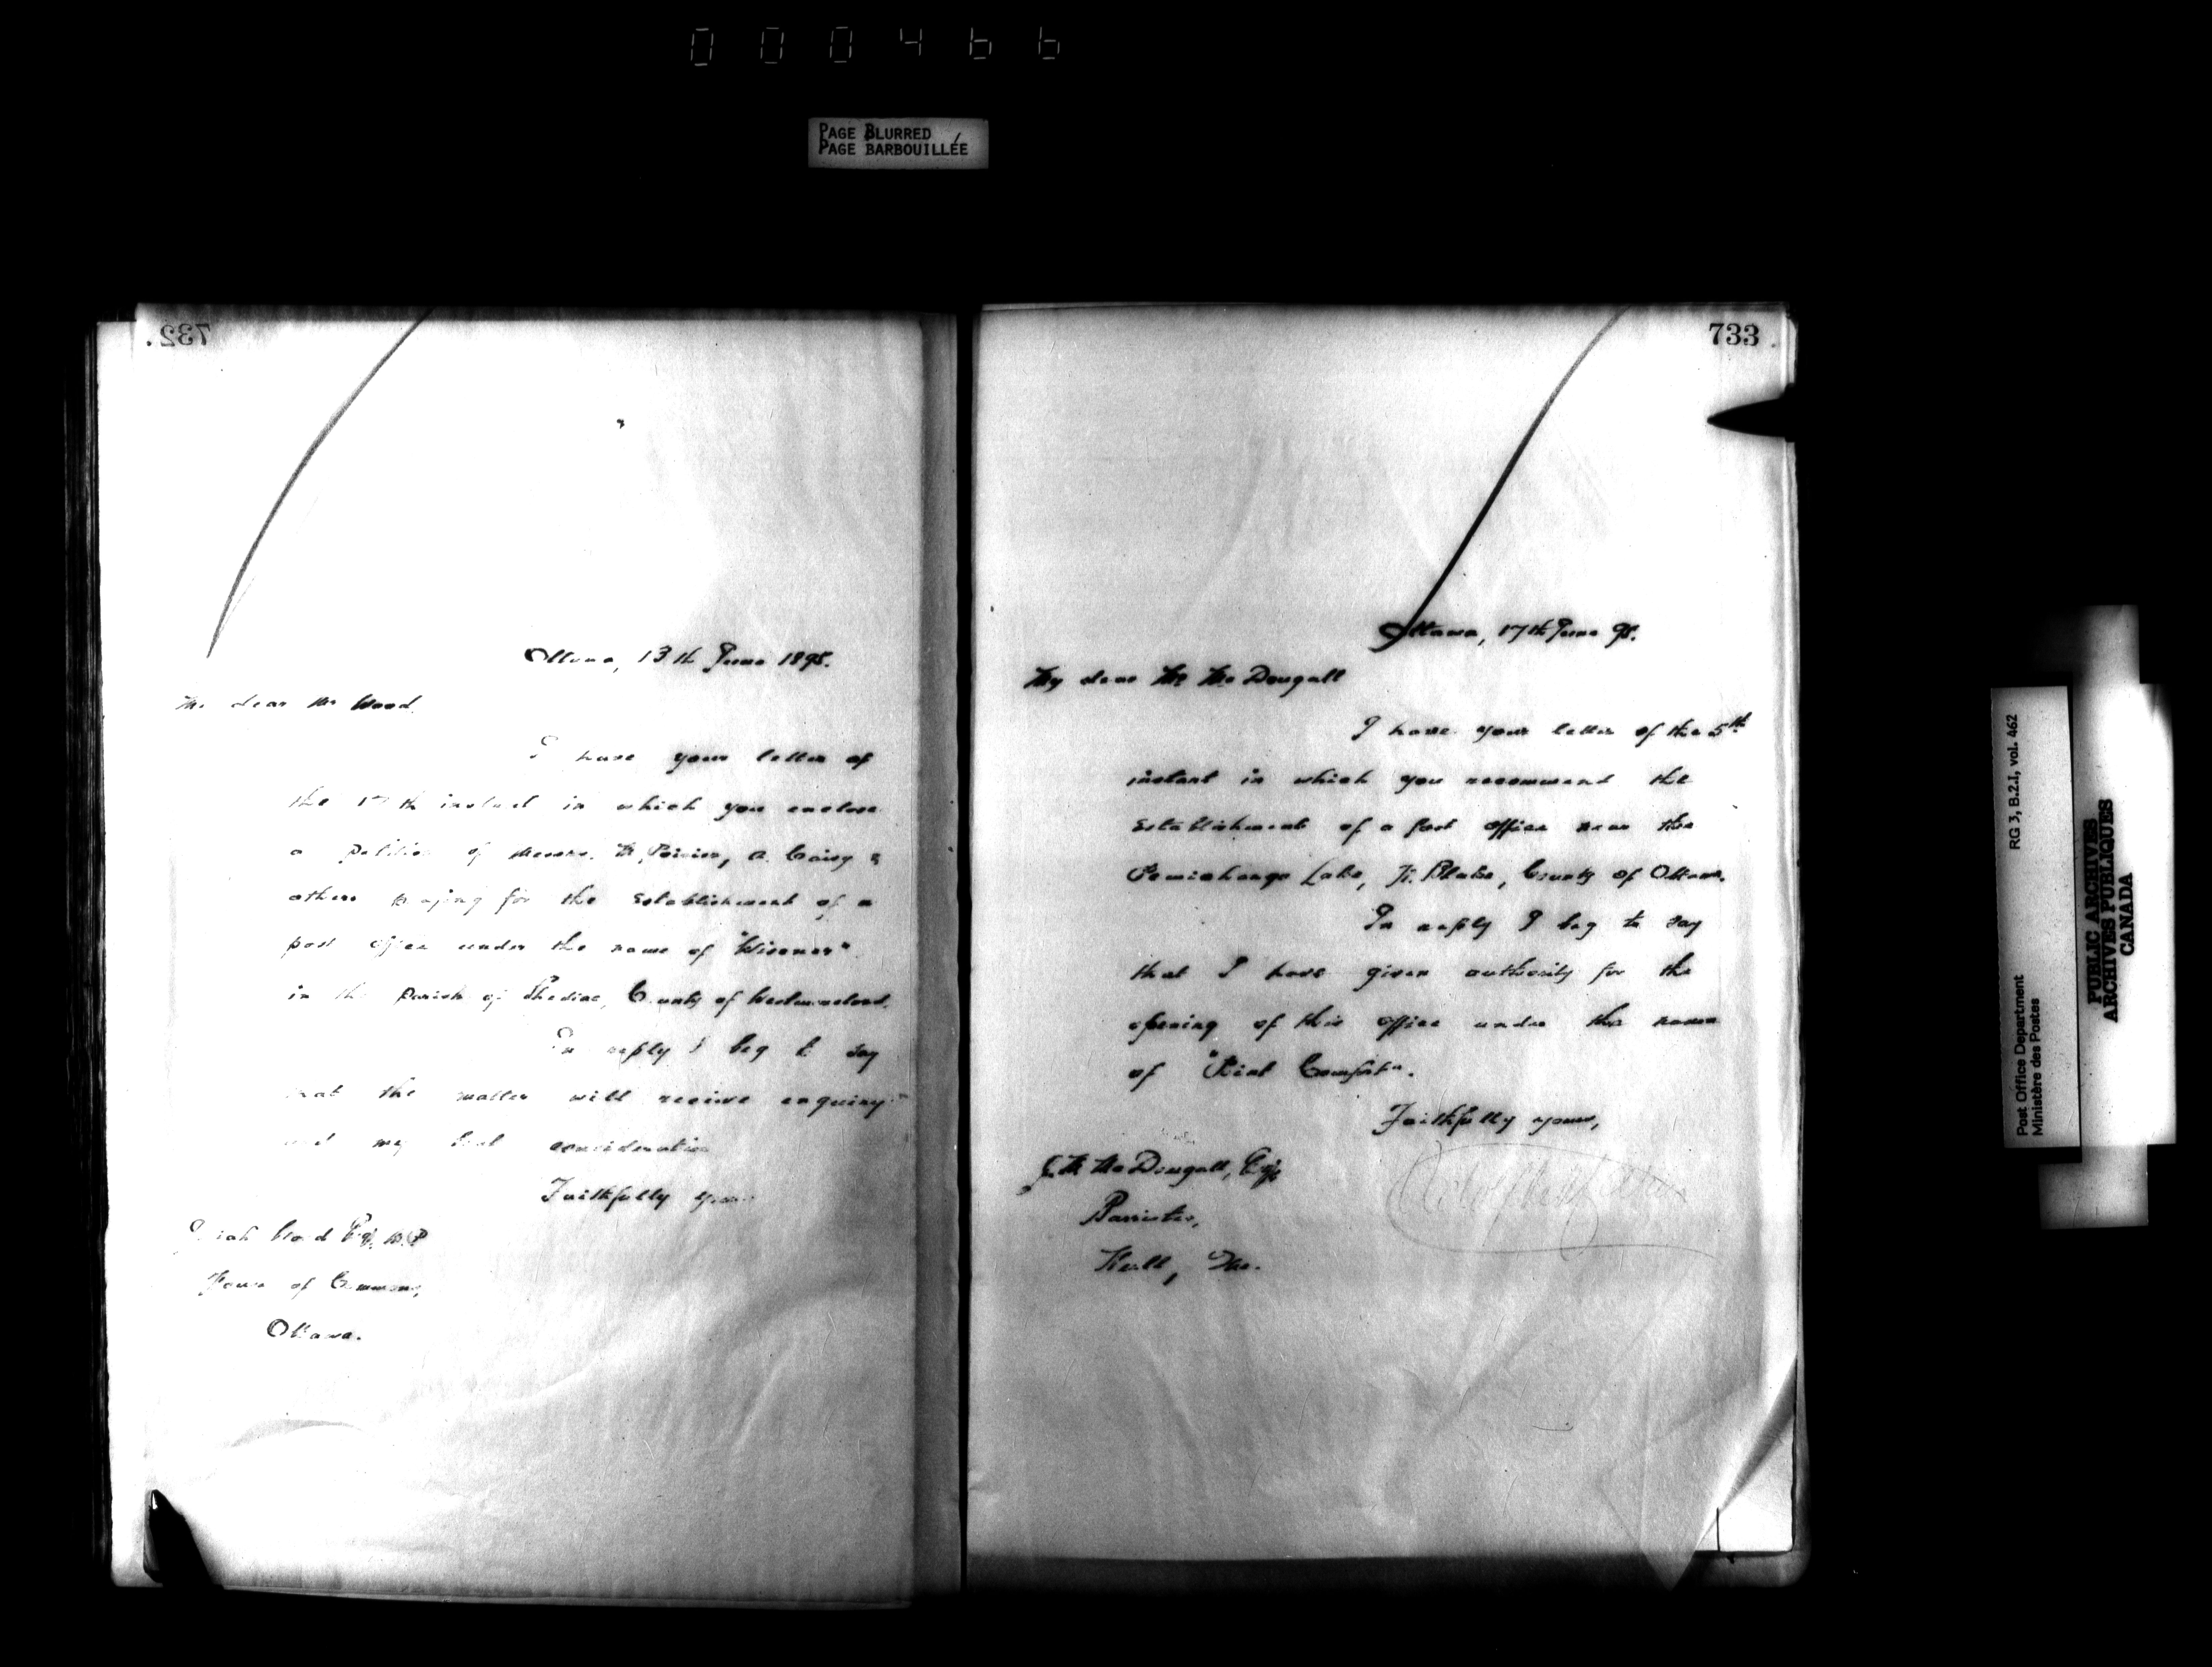 000466
PAGE BLURRED
PAGE BARBOUILLÉE
732.
Ottawa, 13th June 1895.
My dear Mr Wood.
I have your letter of
the 12th instant in which you enclose
a petition of Messrs. Poirier, A.
others praying for the establishment of a
post office under the name of
in the Parish of Shediac, County of Westmoreland.
In reply I beg to say
that the matter will receive enquiry
and my best consideration
Faithfully yours
Josiah Wood Esq. M.P.
House of Commons,
Ottawa.
733
Ottawa, 17th June 95.
My dear Mr McDougall
I have your letter of the 5th
instant in which you recommend the
establishment of a post office near the
Pemichonga Lake, Tp. Blake, County of Ottawa.
In reply I beg to say
that I have given authority for the
opening of this office under the name
of "Point Comfort".
Faithfully yours,
McDougall, Esq,
Barrister,
Hull, Que.
RG 3, B.2.I, vol. 462
Post Office Department
Ministère des Postes
PUBLIC ARCHIVES
ARCHIVES PUBLIQUES
CANADA